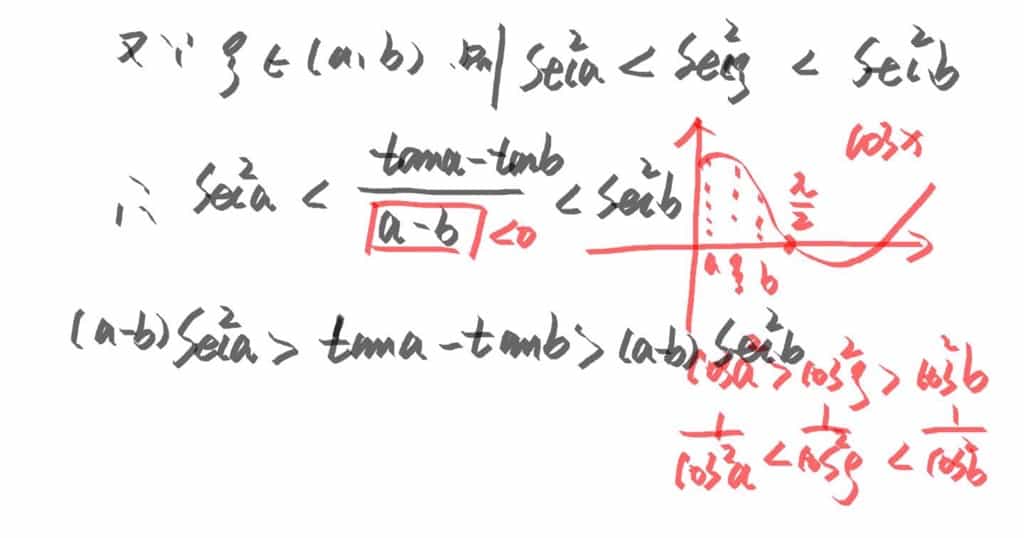 又∵ ξ∈(a,b),则 sec²a < sec²ξ < sec²b
∴ sec²a < (tana-tanb)/(a-b) < sec²b
<0
cosx
π/2
a ξ b
(a-b)sec²a > tana-tanb > (a-b)sec²b
cos²a > cos²ξ > cos²b
1/cos²a < 1/cos²ξ < 1/cos²b